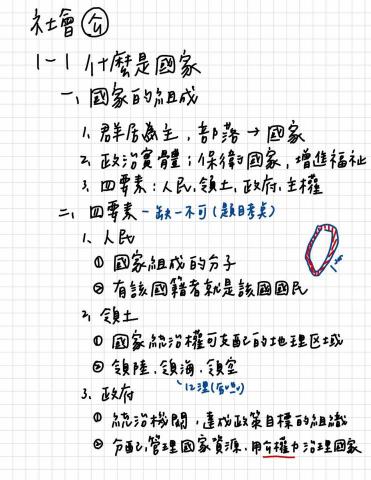 社會 公
1-1 什麼是國家
一、國家的組成
1. 群居為主，部落 → 國家
2. 政治實體：保衛國家，增進福祉
3. 四要素：人民，領土，政府，主權
二、四要素 - 缺一不可（題目考點）
1. 人民
① 國家組成的分子
② 有該國國籍者就是該國國民
2. 領土
① 國家統治權可支配的地理区域
② 領陸，領海，領空
12浬
3. 政府
① 統治機關，達成政策目標的組織
② 分配，管理國家資源，用公權力治理國家